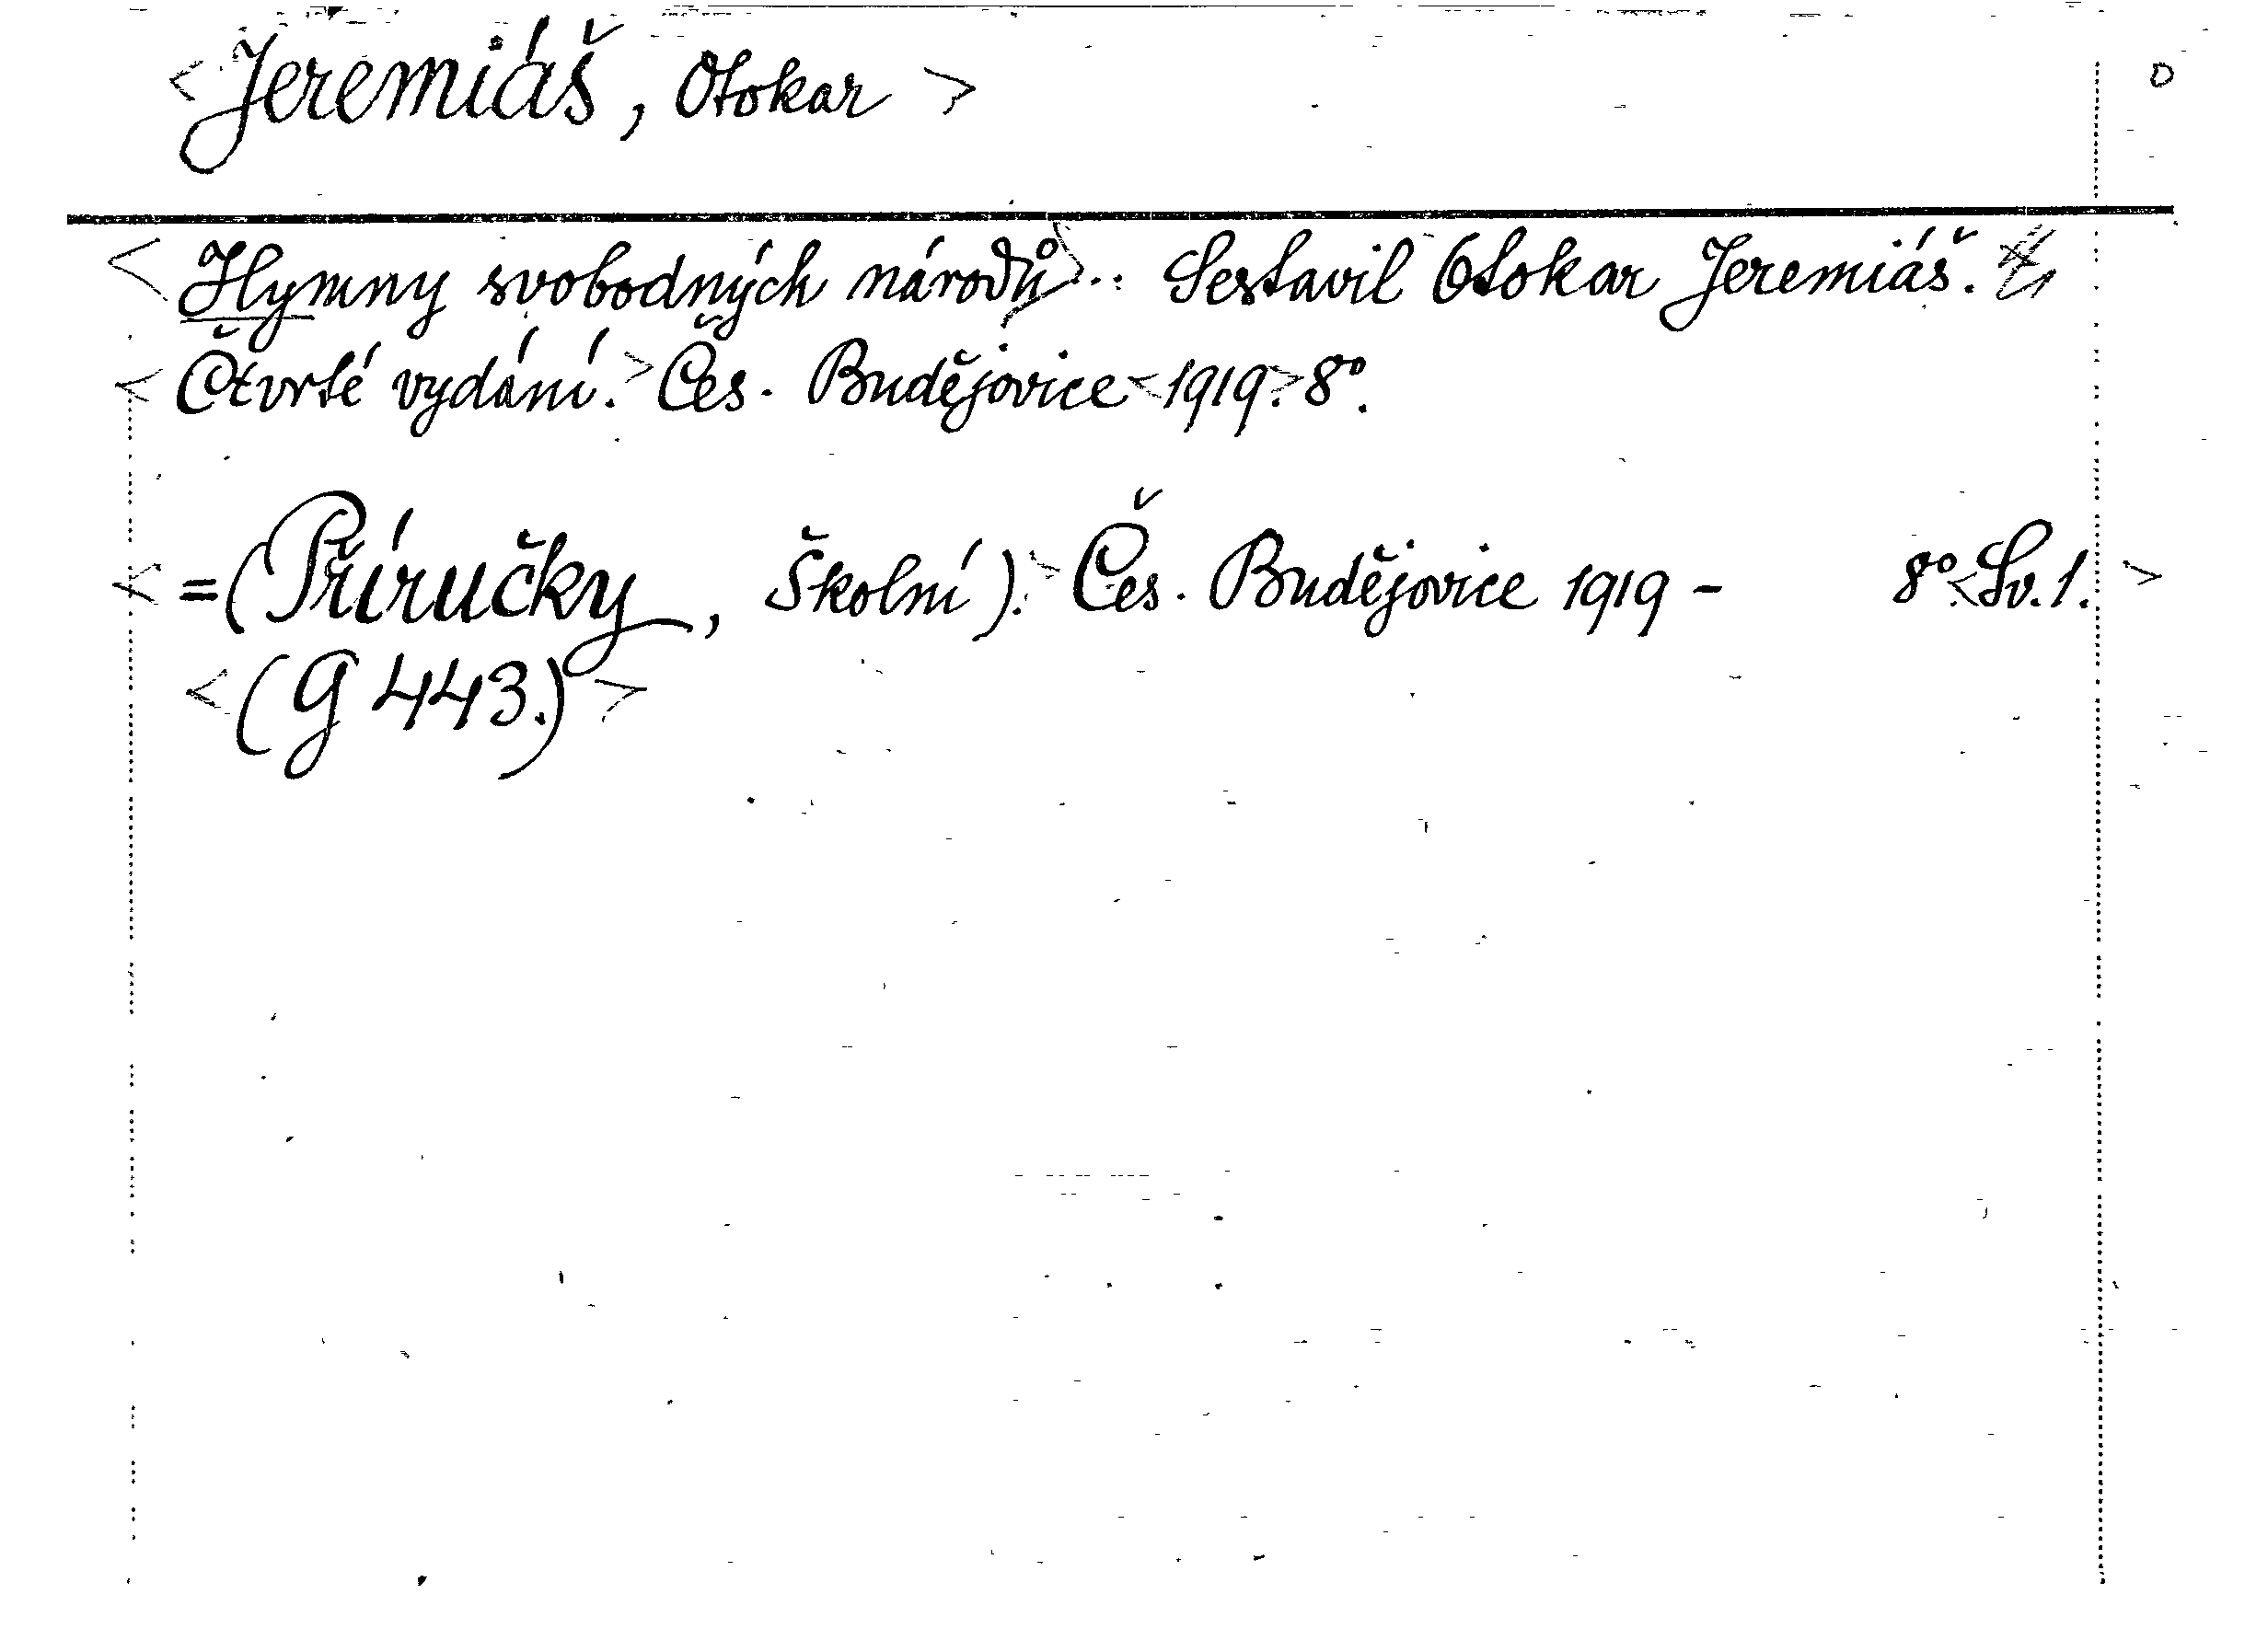 <Jeremiáš, Otokar> O
<Hymny svobodných národů>.. Sestavil Otokar Jeremiáš.
<Čtvrté vydání.> Čes. Budějovice <1919.> 8°.
<=(Příručky, Školní).> Čes. Budějovice 1919 - 8°.<Sv.1.>
<(G 443.)>